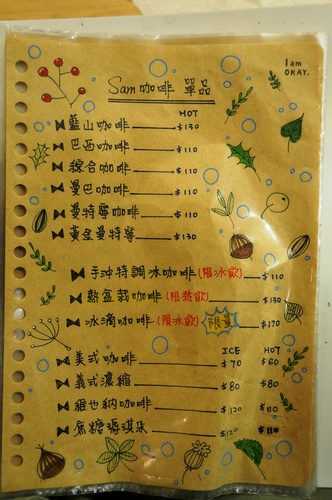 I am
OKAY.
Sam 咖啡 單品
HOT
藍山咖啡 $130
巴西咖啡 $110
綜合咖啡 $110
曼巴咖啡 $110
曼特寧咖啡 $110
黃金曼特寧 $130
手沖特調冰咖啡(限冰飲) $110
熱盆栽咖啡(限熱飲) $130
冰滴咖啡(限冰飲) 限量 $170
ICE HOT
美式咖啡 $70 $60
義式濃縮 $80 $80
維也納咖啡 $120 $110
焦糖瑪琪朵 $120 $110